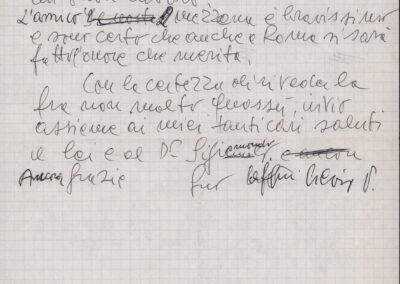 L'amico Mezzana è bravissimo
e son certo che anche a Roma si sarà
fatto onore che merita.
Con la certezza di riveder la
fra non molto quassù, invio
assieme ai miei tanti cari saluti
a lei e al Dr.
Ancora grazie